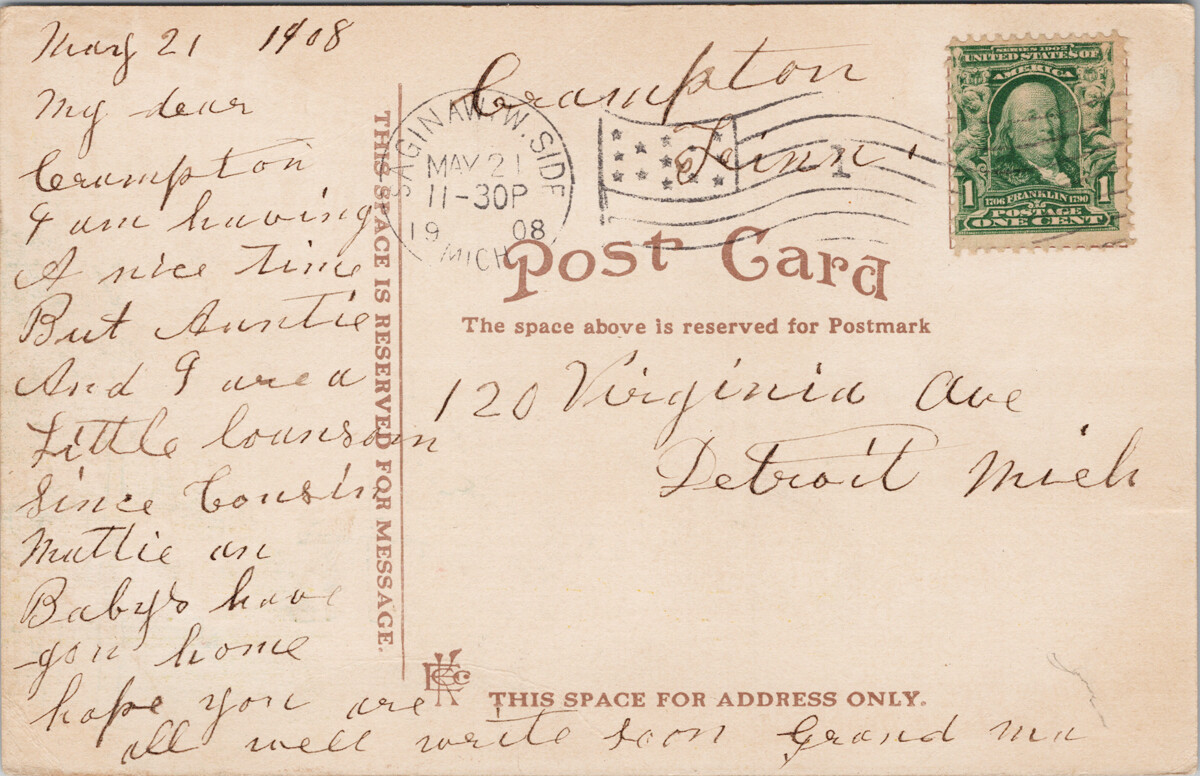 May 21 1908
My dear
Crampton
I am having
A nice time
But Auntie
And I are a
Little lounsom
Since Cousin
Mattie an
Babys have
gon home
hope you are
all well write soon Grand ma
THIS SPACE IS RESERVED FOR MESSAGE.
Crampton
Finn.
SAGINAW, W. SIDE
MAY 21
11-30P
19 08
MICH.
1
SERIES 1902
UNITED STATES OF
AMERICA
1 1706 FRANKLIN 1790 1
POSTAGE
ONE CENT
Post Card
The space above is reserved for Postmark
120 Virginia Ave
Detroit Mich
THIS SPACE FOR ADDRESS ONLY.